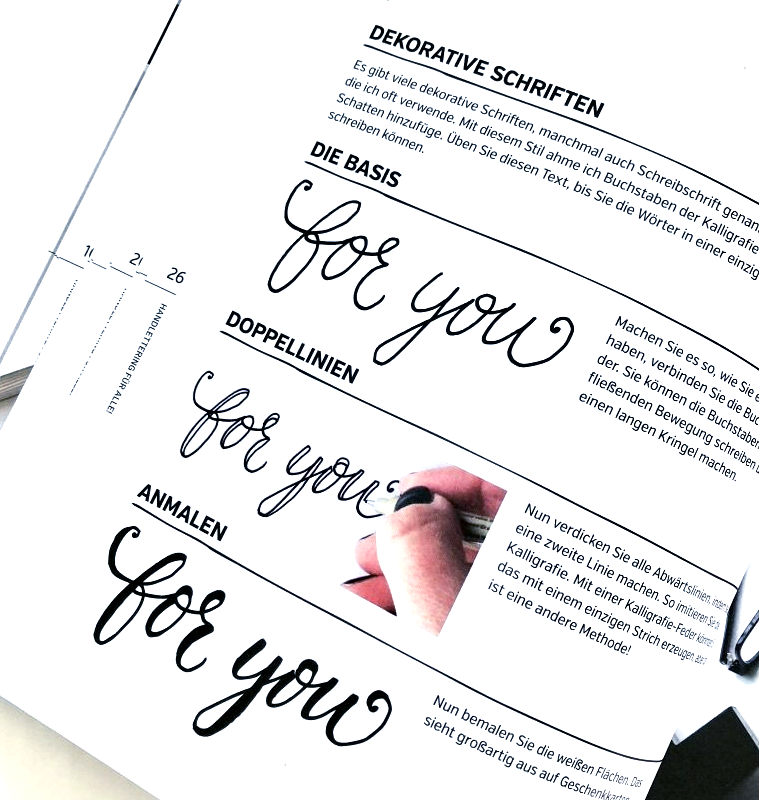 DEKORATIVE SCHRIFTEN
Es gibt viele dekorative Schriften, manchmal auch Schreibschrift
die ich oft verwende. Mit diesem Stil ahme ich Buchstaben der Kalligrafie
Schatten hinzufüge. Üben Sie diesen Text, bis Sie die Wörter in einer
schreiben können.
DIE BASIS
for you
Machen Sie es so, wie Sie
haben, verbinden Sie die
der. Sie können die Buchstaben
fließenden Bewegung schreiben
einen langen Kringel machen.
26
HANDLETTERING FÜR ALLE!
DOPPELLINIEN
for you
Nun verdicken Sie alle Abwärtslinien,
eine zweite Linie machen. So imitieren Sie
Kalligrafie. Mit einer Kalligrafie-Feder
das mit einem einzigen Strich erzeugen,
ist eine andere Methode!
ANMALEN
for you
Nun bemalen Sie die weißen Flächen. Das
sieht großartig aus auf Geschenkkarten